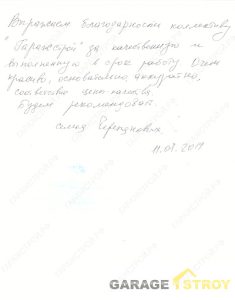 Выражаем благодарность коллективу
"Гаражстрой" за качественную и
выполненную в срок работу Очень
красиво, основательно аккуратно,
соответствие цена-качество.
Будем рекомендовать.
семья
11.09.2017
GARAGE STROY